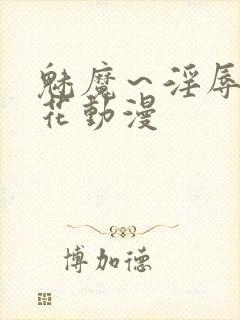 魅魔～淫辱
花動漫
博加德